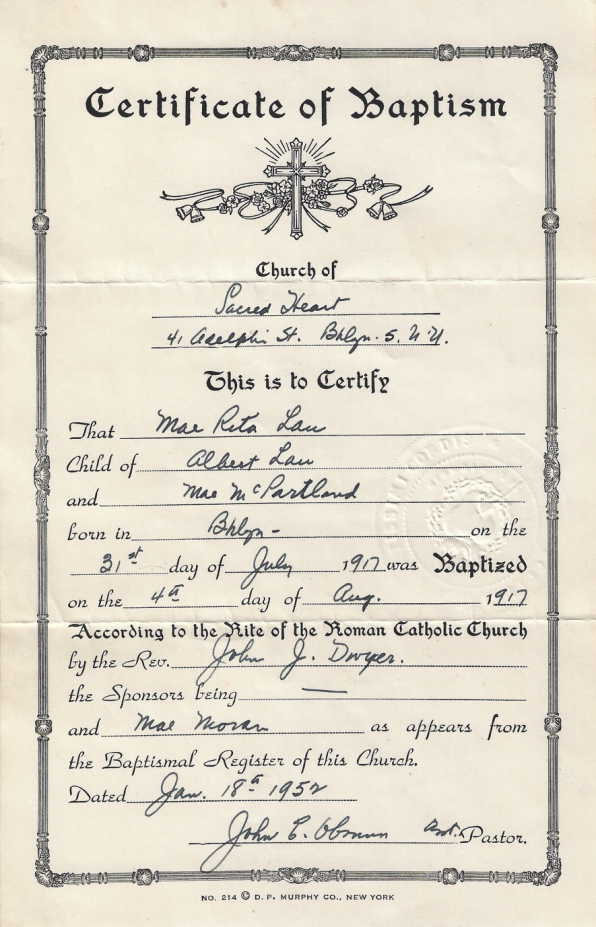 Certificate of Baptism
Church of
Sacred Heart
41 Adelphi St. Bklyn. 5, N.Y.
This is to Certify
That Mae Rita Lau
Child of Albert Lau
and Mae McPartland
born in Bklyn - on the
31st day of July 1917 was Baptized
on the 4th day of Aug. 1917
According to the Rite of the Roman Catholic Church
by the Rev. John J. Dwyer.
the Sponsors being —
and Mae Moran as appears from
the Baptismal Register of this Church.
Dated Jan. 18th 1952
John E. Asst. Pastor.
NO. 214 © D. P. MURPHY CO., NEW YORK